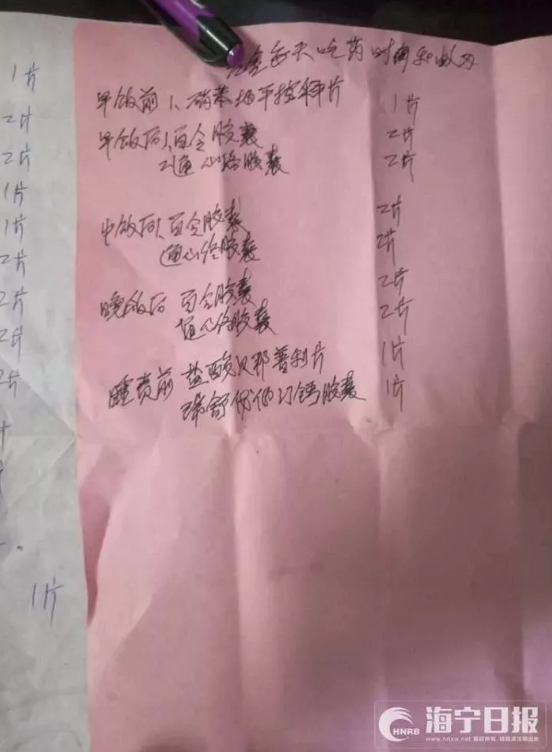 每天吃药时间和
早饭前 1、硝苯地平控释片 1片
早饭后 1、百令胶囊 2片
2通心络胶囊 2片
中饭后1、百令胶囊 2片
通心络胶囊 2片
晚饭后 百令胶囊 2片
通心络胶囊 2片
睡觉前 盐酸贝那普利片 1片
瑞舒伐他汀钙胶囊 1片
1片
2片
2片
1片
1片
2片
2片
2片
2片
1片
HNRB
海宁日报
www.hnxw.net